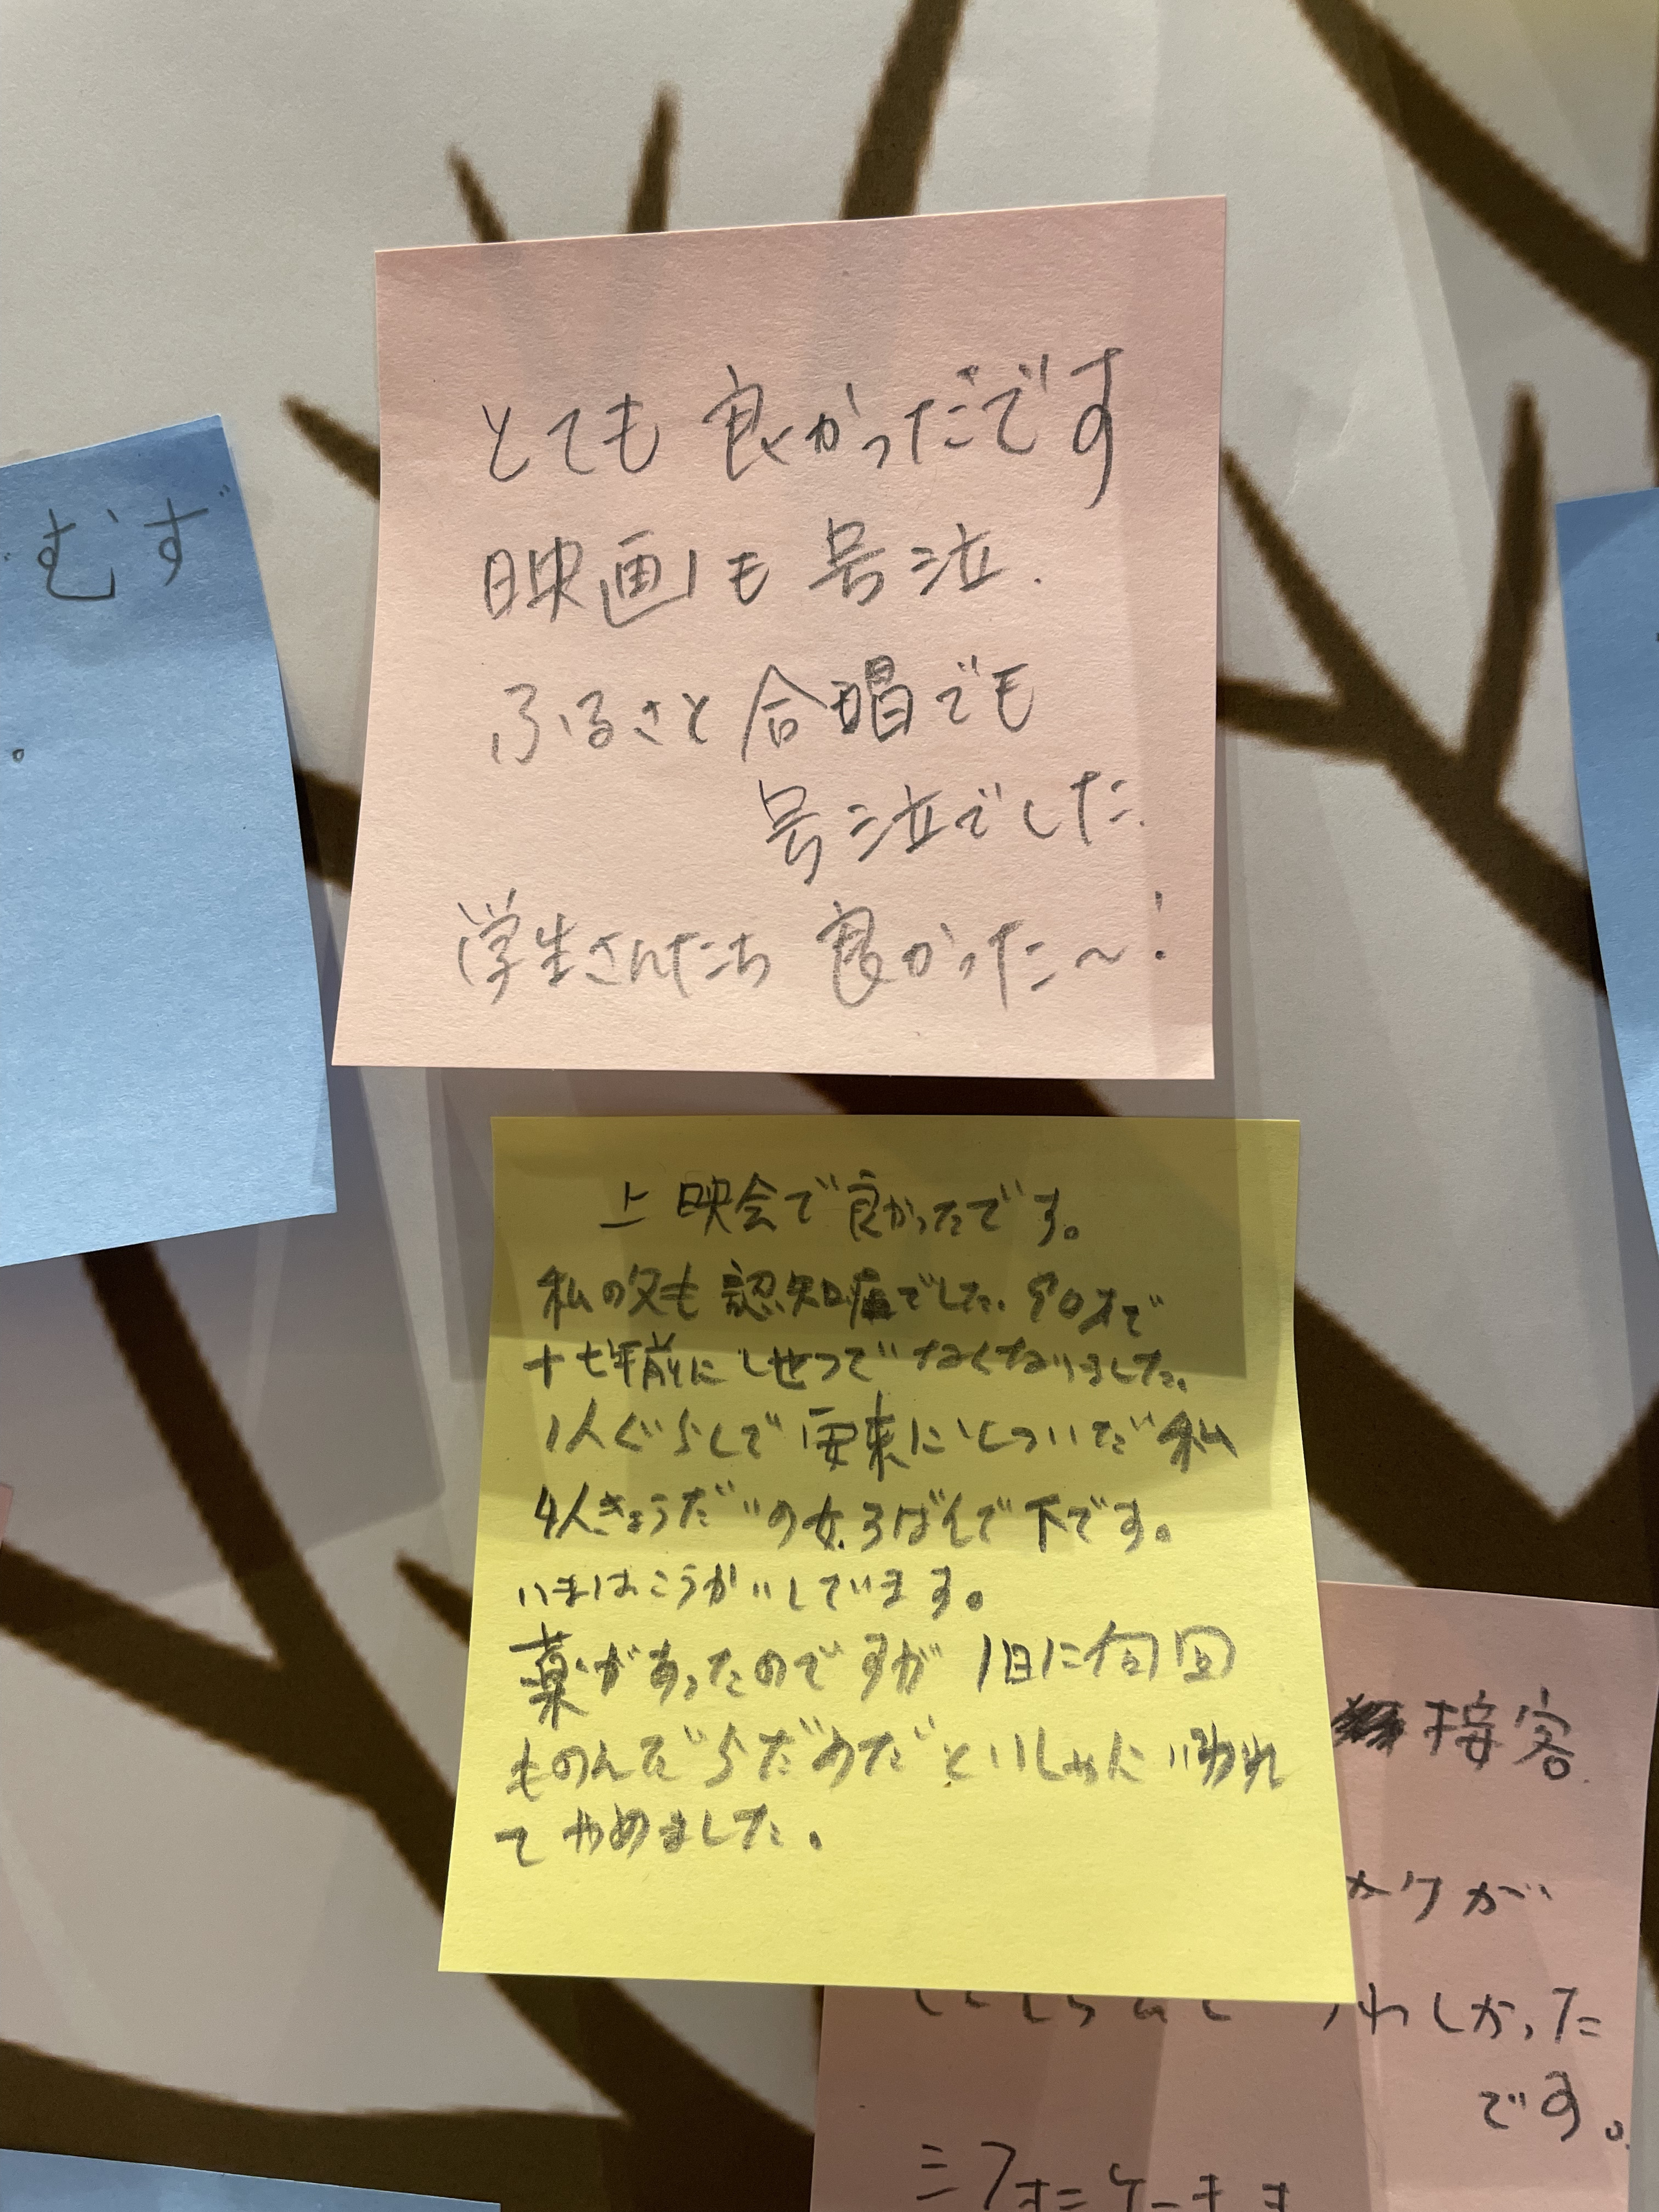 むす゛
。
とても 良かっだです
映画も 号泣.
ふるさと 合唱でも
号泣でした.
学生さんたち 良かった〜!
上映会で良かったです。
私の父も 認知症でした. 90才で
十七年前に なくなりました.
1人ぐらしで 私
4人きょうだいの女3ばんで下です。
いまはこうかいしています。
薬があったのですが 1日に何回
ものんだらだめだといしゃに
てやめました。
接客
が
しかった
です。